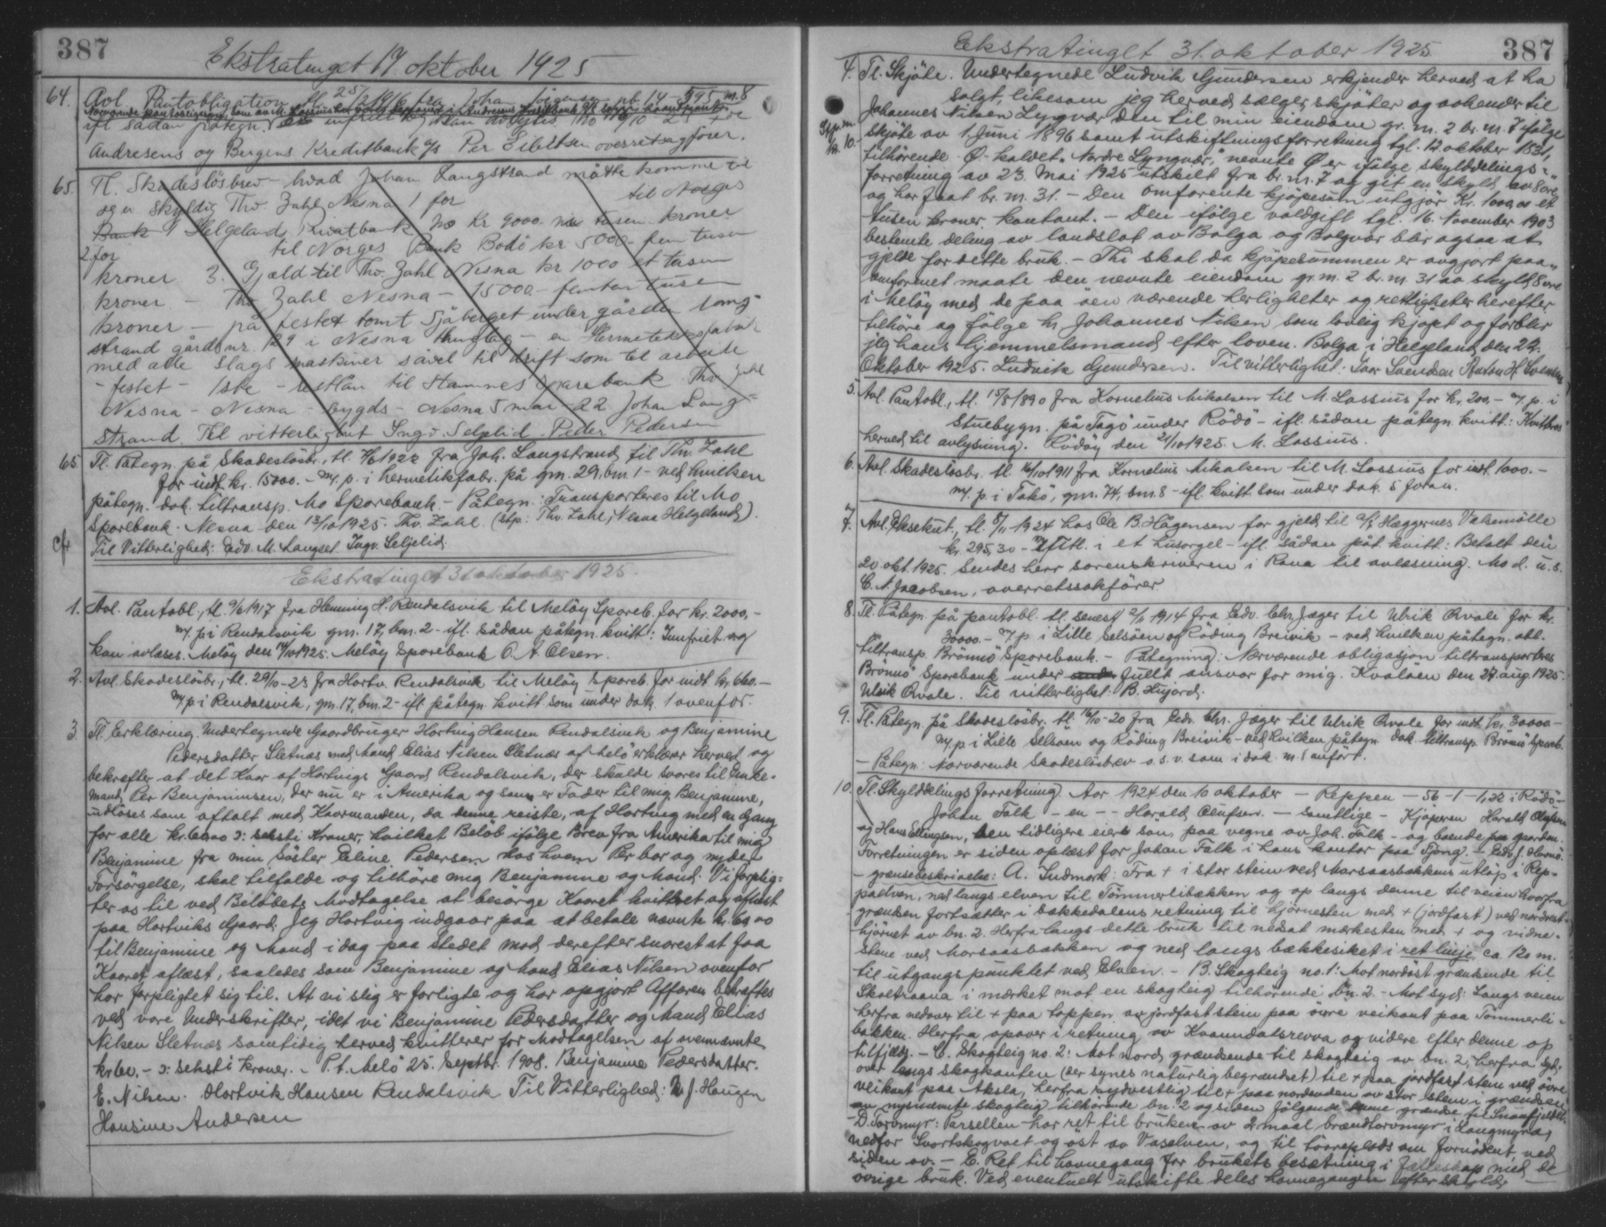 387
Ekstratinget 17 oktober 1925
64. Avl. Pantobligation
ifl sådan påtegn.
Andresens og Bergens Kreditbank A/S Per Eibeltsen overretssagfører.
65. Tl. Skadesløsbrev hvad Johan Langstrand måtte komme til
og er skyldig Thv Zahl Nesna 1 for til Norges
Bank Helgeland Privatbank Mo kr 9000 ni tusen kroner
2 for til Norges Bank Bodö kr 5000 fem tusen
kroner 3. Gjæld til Thv. Zahl Nesna kr 1000 et tusen
kroner - Thv Zahl Nesna - 15000 - femten tusen
kroner - på festet tomt Sjåberget under gården Lang-
strand gårds nr. 129 i Nesna thinglag - en Hermetikfabrik
med alle slags maskiner såvel til drift som til arbeide
- festet - 1ste - til Hamnes Sparebank Thv Zahl
Nesna - Nesna - bygds - Nesna 5 mai - 22 Johan Lang-
strand. Til vitterlighet Ingv. Seljelid Peder Pedersen
65 Tl. Påtegn. på Skadeslösbr. tl. 1922 fra Joh. Langstrand til Thv. Zahl
for indt kr. 15000.- m/ p. i hermetikfabr. på gm. 29. bm. 1 - ved hvilken
påtegn. dok. tiltransp. Mo Sparebank - Påtegn: Transporteres til Mo
Sparebank. Nesna den 13/10 1925. Thv. Zahl. (stp: Thv. Zahl, Nesna Helgeland).
Til Vitterlighed: Edv. M. Langset Ingv. Seljelid
Ekstratinget 31 oktober 1925.
1. Avl. Pantobl., tl. 9/6 1917 fra Henning H. Rendalsvik til Melöy Spareb. for kr. 2000,-
m/ p. i Rendalsvik gm. 17, bm. 2 - ifl. sådan påtegn. kvitt: Innfriet og
kan avlæses. Melöy den 1925. Melöy Sparebank O. A. Olsen.
2. Avl. Skadeslösbr., tl. 29/10-23 fra Hartv. Rendalsvik til Melöy Spareb. for indt kr. 660.-
m/ p. i Rendalsvik, gm. 17, bm. 2 - ifl. påtegn. kvitt som under dok. 1 ovenfor.
3. Tl. Erklæring. Undertegnede Gaardbruger Hartvig Hansen Rendalsvik og Benjamine
Pedersdatter Sletnæs med Mand Elias Nilsen Sletnæs af Melö erklærer herved og
bekrefter at det Kaar af Hartvigs Gaard Rendalsvik, der skulde svares til Enke-
mand Per Benjaminsen, der nu er i Amerika og som er Fader til mig Benjamine,
udlöses som aftalt med Kaarmanden, da denne reiste, af Hartvig med en Gang
for alle kr. 60.00 ɔ: seksti Kroner, hvilket Belöb ifölge Brev fra Amerika til mig
Benjamine fra min Söster Eline Pedersen hos hvem Per bor og nyder
Forsörgelse, skal tilfalde og tilhöre mig Benjamine og Mand. Vi forplig-
ter os til ved Belöbets Modtagelse at besörge Kaaret kvitteret og aflæst
paa Hartviks Gjaard. Jeg Hartvig indgaar paa at betale nævnte kr. 60.00
til Benjamine og Mand i dag paa Stedet mod derefter snarest at faa
Kaaret aflæst, saaledes som Benjamine og Mand Elias Nilsen ovenfor
har forpligtet sig til. At vi slig er forligte og har opgjort Affæren bekræftes
ved vore Underskrifter, idet vi Benjamine Pedersdatter og Mand Elias
Nilsen Sletnæs samtidig herved kvitterer for Modtagelsen af ovennævnte
kr. 60.- ɔ: seksti kroner. - P.t. Melö 25. Septbr. 1908. Benjamine Pedersdatter.
E. Nilsen. Hartvik Hansen Rendalsvik Til Vitterlighed: J. Haugen
Hansine Andersen
Ekstratinget 31. oktober 1925
387
4. Tl. Skjöte. Undertegnede Ludvik Gundersen erkjender herved at ha
solgt, likesom jeg herved sælger, skjöter og avhender til
Johannes Nilsen Lyngvær den til min eiendom gr. nr. 2 br. nr. 7 ifölge
skjöte av 1 Juni 1896 samt utskiftningsforretning tgl. 12 oktober 1831,
tilhörende Ø kaldet Nordre Lyngvær, nevnte Ø er ifölge skylddelings-
forretning av 23 mai 1925 utskilt fra br. nr. 7 og git en skyld av 8 öre
og har faat br. nr. 31. - Den omforente kjöpesum utgjör Kr. 1000,00 et
tusen kroner kontant. - Den ifölge voldgift tgl. 16 November 1903
bestemte deling av landslot av Bolga og Bolgvær blir ogsaa at
gjelde for dette bruk. - Thi skal da kjöpesummen er avgjort paa
omforenet maate den nevnte eiendom gr. nr. 2 br. nr. 31 av skyld 8 öre
i Melöy med de paa den værende herligheter og rettigheter herefter
tilhöre og fölge hr. Johannes Nilsen som lovlig kjöpt og forblir
jeg hans hjemmelsmand efter loven. Bolga i Helgeland, den 24.
Oktober 1925. Ludvik Gundersen. Til vitterlighet:
5. Avl. Pantobl., tl. 1890 fra Kornelius Mikalsen til M. Lossius for kr. 200.- m/ p. i
Stuebygn. på under Rödö - ifl. sådan påtegn. kvitt: Kvitteres
herved til avlysning. Rödöy den 21/10 1925. M. Lossius.
6. Avl. Skadeslösbr. tl. 16/10 1911 fra Kornelius Mikalsen til M. Lossius for indt. 1000.-
m/ p. i gm. 74, bm. 8 - ifl. kvitt som under dok. 5 foran.
7. Avl. Eksekut., tl. 1924 hos Ole B. Hagensen for gjeld til A/S Hæggernes Valsemölle
kr. 295,30 - i et husorgel - ifl. sådan påt. kvitt: Betalt den
20 okt. 1925. Sendes herr sorenskriveren i Rana til avlæsning. Mo d. u. s.
C. A. Jacobsen, overretssakförer
8. Tl. Påtegn. på pantobl. tl. senest 1914 fra Edv. Chr. Jæger til Ulrik Qvale for kr.
30000.- m/ p. i Lille Selsöen og Röding Breivik - ved hvilken påtegn. obl.
tiltransp. Brönnö Sparebank. - Påtegning: Nærværende obligasjon tiltransporteres
Brönnö Sparebank under fullt ansvar for mig. Kvalöen den 29 aug 1925.
Ulrik Qvale. Til vitterlighet: B. Hujord.
9. Tl. Påtegn. på Skadeslösbr. tl. 16/10-20 fra Edv. Chr. Jæger til Ulrik Qvale for indt. kr. 30000.-
m/ p. i Lille Selsöen og Röding Breivik - ved hvilken påtegn. dok. tiltransp. Brönnö Spareb.
- Påtegn: Nærværende Skadeslösbrev o.s.v. som i dok. nr. 8 anfört.
10. Tl. Skylddelingsforretning. Aar 1924 den 16 oktober - Reppen - 56 - 1 - 1,22 i Rödö -
Johan Falk - en - Harald Olufsen - Samtlige - Kjöperen Harald Olufsen
og Hans Ellingsen, den tidligere eiers sön, paa vegne av Joh. Falk - og boende paa gaarden.
Forretningen er siden oplæst for Johan Falk i hans kontor paa Tjong.
- grænsebeskrivelse: A. Indmark: Fra + i stor stein ved Marsaasbakkens utlöp i Rep-
paelven, ned langs elven til Tömmerlibakken og op langs denne til veien hvorfra
grænsen fortsætter i bækkedalens retning til hjörnesten med + (jordfast) ved nordvest-
hjörnet av bn. 2. Herfra langs dette bruk til nedsat merkesten med + og vidne-
stene ved Marsaasbakken og ned langs bækkesiket i ret linje ca 120 m.
til utgangspunktet ved Elven. - B. Skogteig no. 1: Mot nordöst grænsende til
i mærket mot en skogteig tilhörende bn. 2 - Mot syd: Langs veien
herfra nedover til + paa toppen av jordfast sten paa övre veikant paa Tömmerli-
bakken. Herfra opover i retning av Kvanndalsrevva og videre efter denne op
tilfjælds. - C. Skogteig no. 2: Mot nord grændsende til skogteig av bn. 2, herfra syd-
over langs skogkanten (der synes naturlig begrændset) til + paa jordfast sten ved övre
veikant paa Aksla, herfra sydvestlig til + paa nordenden av stor sten i grændsen
av nysnævnte skogteig tilhörende bn. 2 og siden fölgende denne grændse
- D. Torvmyr: Parsellen har ret til bruken av 2 maal brændtorvmyr i Langmyra,
nedfor Svartskogvæet og öst av Vaselven, og til törreplads om fornödent ved
siden av. - E. Ret til havnegang for brukets besætning i Fælleskap med de
övrige bruk. Ved eventuelt utskifte deles havnegangen efter skyld